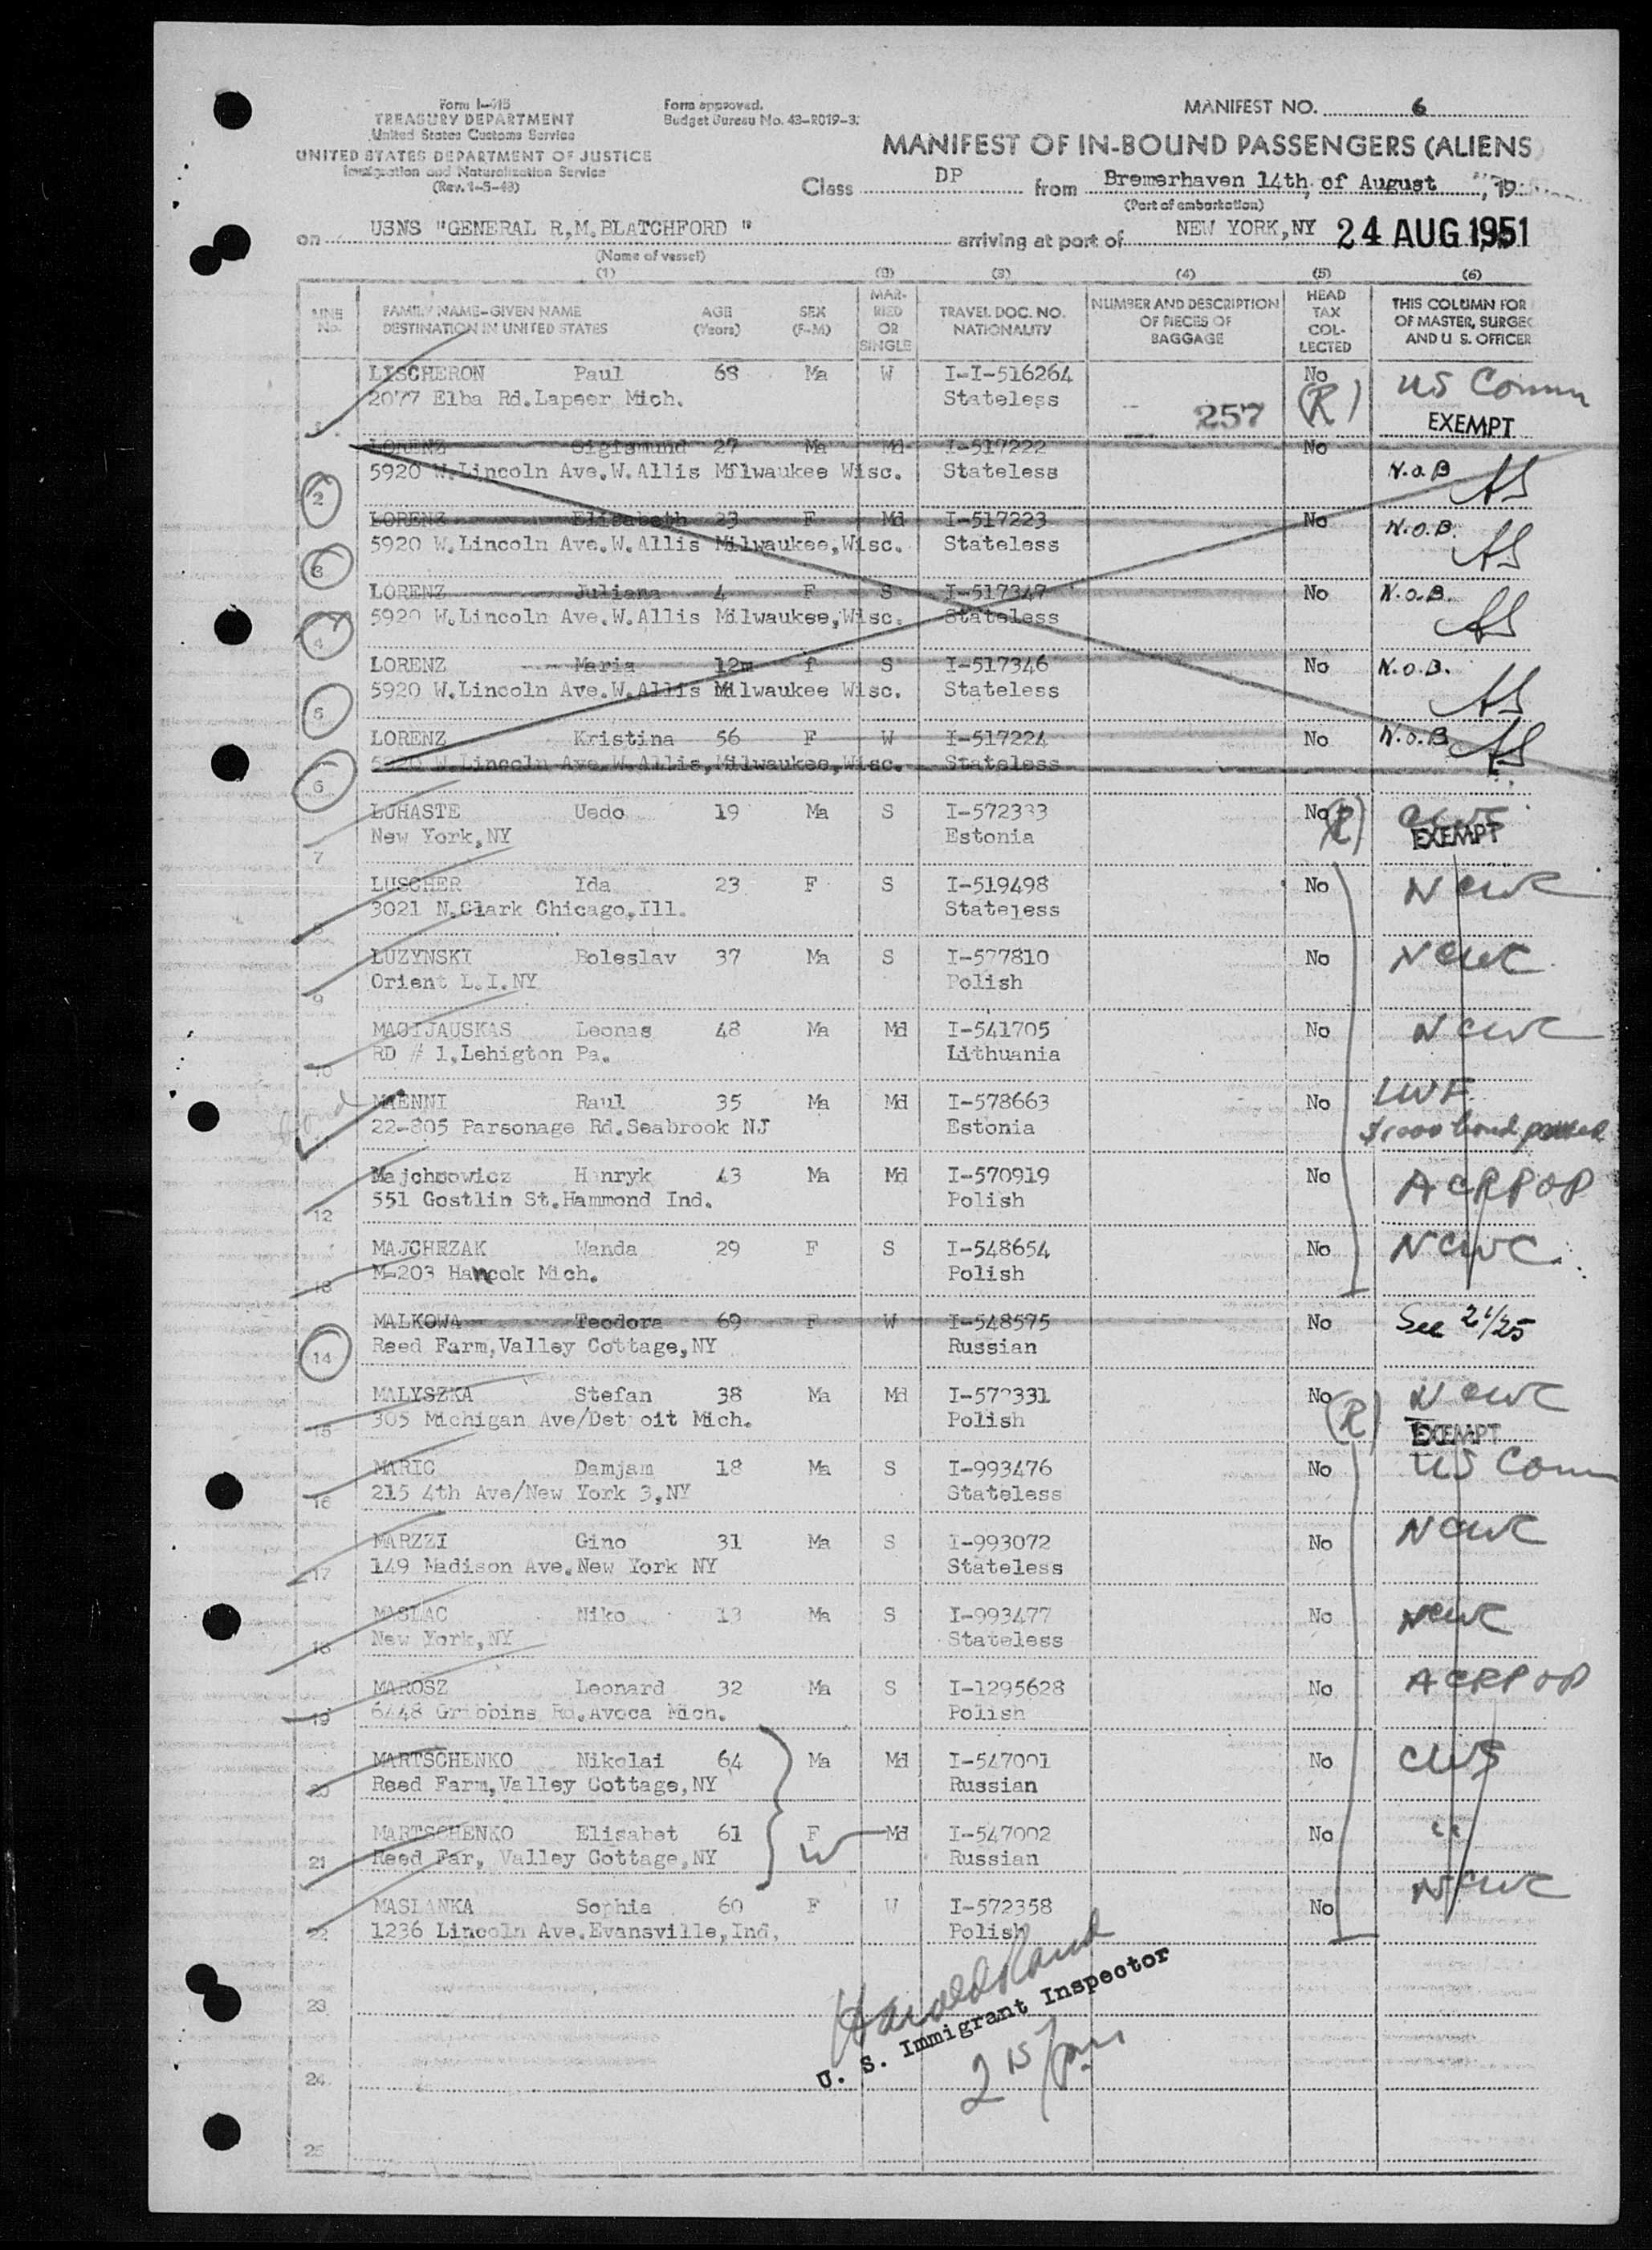 Form I-415
TREASURY DEPARTMENT
United States Customs Service
UNITED STATES DEPARTMENT OF JUSTICE
Immigration and Naturalization Service
(Rev. 1-5-48)
Form approved.
Budget Bureau No. 43-R019-3.
MANIFEST NO. 6
MANIFEST OF IN-BOUND PASSENGERS (ALIENS
Class DP from Bremerhaven 14th, of August, 19
(Port of embarkation)
on USNS "GENERAL R,M.BLATCHFORD " arriving at port of NEW YORK,NY 24 AUG 1951
(Name of vessel)
(1) (2) (3) (4) (5) (6)
LINE No. FAMILY NAME-GIVEN NAME DESTINATION IN UNITED STATES AGE (Years) SEX (F-M) MARRIED OR SINGLE TRAVEL DOC. NO. NATIONALITY NUMBER AND DESCRIPTION OF PIECES OF BAGGAGE HEAD TAX COLLECTED THIS COLUMN FOR OF MASTER, SURGEO AND U S. OFFICER
LISCHERON Paul 68 Ma W I-I-516264 No US Comm
2077 Elba Rd.Lapeer Mich. Stateless 257 (R) EXEMPT
1
LORENZ Sigismund 27 Ma Md I-517222 No
5920 W.Lincoln Ave.W.Allis Milwaukee Wisc. Stateless N.O.B AS
2
LORENZ Elisabeth 23 F Md I-517223 No N.O.B. AS
5920 W.Lincoln Ave.W.Allis Milwaukee,Wisc. Stateless
3
LORENZ Juliana 4 F S I-517347 No N.O.B. AS
5920 W.Lincoln Ave.W.Allis Milwaukee,Wisc. Stateless
4
LORENZ Maria 12m f S I-517346 No N.O.B. AS
5920 W.Lincoln Ave.W.Allis Milwaukee Wisc. Stateless
5
LORENZ Kristina 56 F W I-517224 No N.O.B AS
5920 W.Lincoln Ave.W.Allis,Milwaukee,Wisc. Stateless
6
LOHASTE Uedo 19 Ma S I-572333 No (R) CWS
New York,NY Estonia EXEMPT
7
LUSCHER Ida 23 F S I-519498 No NCWC
3021 N.Clark Chicago,Ill. Stateless
8
LUZYNSKI Boleslav 37 Ma S I-577810 No NCWC
Orient L.I.NY Polish
9
MACIJAUSKAS Leonas 48 Ma Md I-541705 No NCWC
RD # 1,Lehigton Pa. Lithuania
10
MAENNI Raul 35 Ma Md I-578663 No LWF
22-805 Parsonage Rd.Seabrook NJ Estonia $1000 bond posted
Majchrowicz Henryk 43 Ma Md I-570919 No ACRPOP
551 Gostlin St.Hammond Ind. Polish
12
MAJCHRZAK Wanda 29 F S I-548654 No NCWC
M-203 Hancok Mich. Polish
13
MALKOWA Teodora 69 F W I-548575 No See 21/25
Reed Farm,Valley Cottage,NY Russian
14
MALYSZKA Stefan 38 Ma Md I-572331 No (R) NCWC
305 Michigan Ave/Detroit Mich. Polish EXEMPT
15
MARIC Damjam 18 Ma S I-993476 No US Comm
215 4th Ave/New York 3,NY Stateless
16
MARZZI Gino 31 Ma S I-993072 No NCWC
149 Madison Ave.New York NY Stateless
17
MASLAC Niko 13 Ma S I-993477 No NCWC
New York,NY Stateless
18
MAROSZ Leonard 32 Ma S I-1295628 No ACRPOP
6448 Gribbins Rd.Avoca Mich. Polish
19
MARTSCHENKO Nikolai 64 Ma Md I-547001 No CWS
Reed Farm,Valley Cottage,NY Russian
20
MARTSCHENKO Elisabet 61 F Md I-547002 No "
Reed Far, Valley Cottage,NY W Russian
21
MASLANKA Sophia 60 F W I-572358 No NCWC
1236 Lincoln Ave.Evansville,Ind, Polish
22
23
24
25
Harold Rand
U. S. Immigrant Inspector
2 15/pm